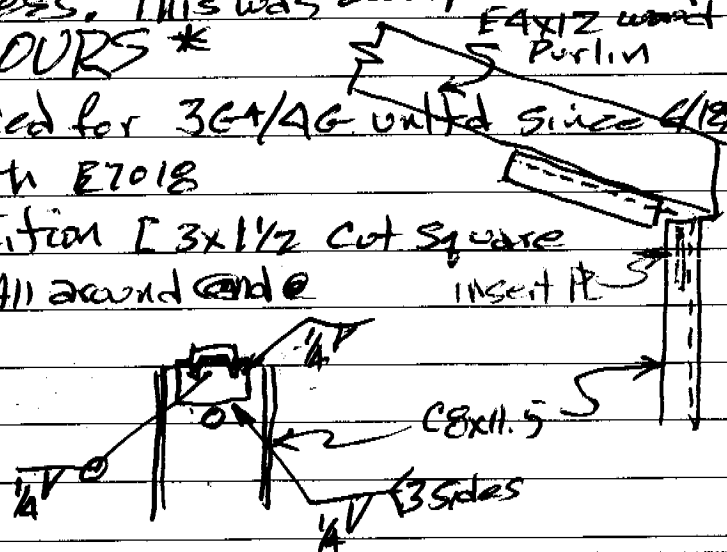 ess. This was
E4x12
OURS *
Purlin
ed for 3G+/4G united since 6/18
th E7018
ition [ 3x1 1/2 Cut Square
All around @nd @
insert PL
1/4
C8x11.5
1/4
1/4 3 sides